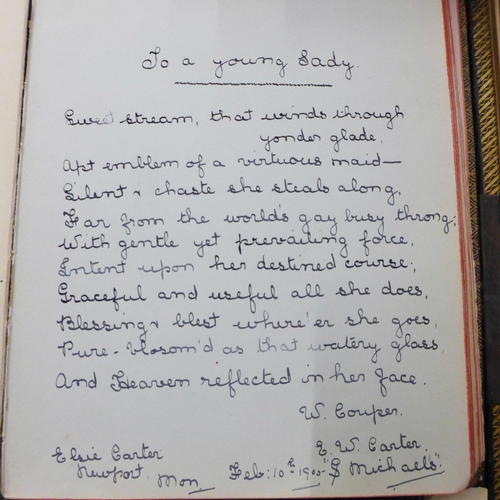 To a young Lady.
Sweet stream, that winds through
yonder glade,
Apt emblem of a virtuous maid—
Silent & chaste she steals along,
Far from the world's gay busy throng;
With gentle yet prevailing force,
Intent upon her destined course;
Graceful and useful all she does,
Blessing & blest where'er she goes,
Pure-blosom'd as that watery glass
And Heaven reflected in her face.
W. Couper.
E. W. Carter,
Elsie Carter
Newport, Mon Feb: 10th 1905 "St Michaels".